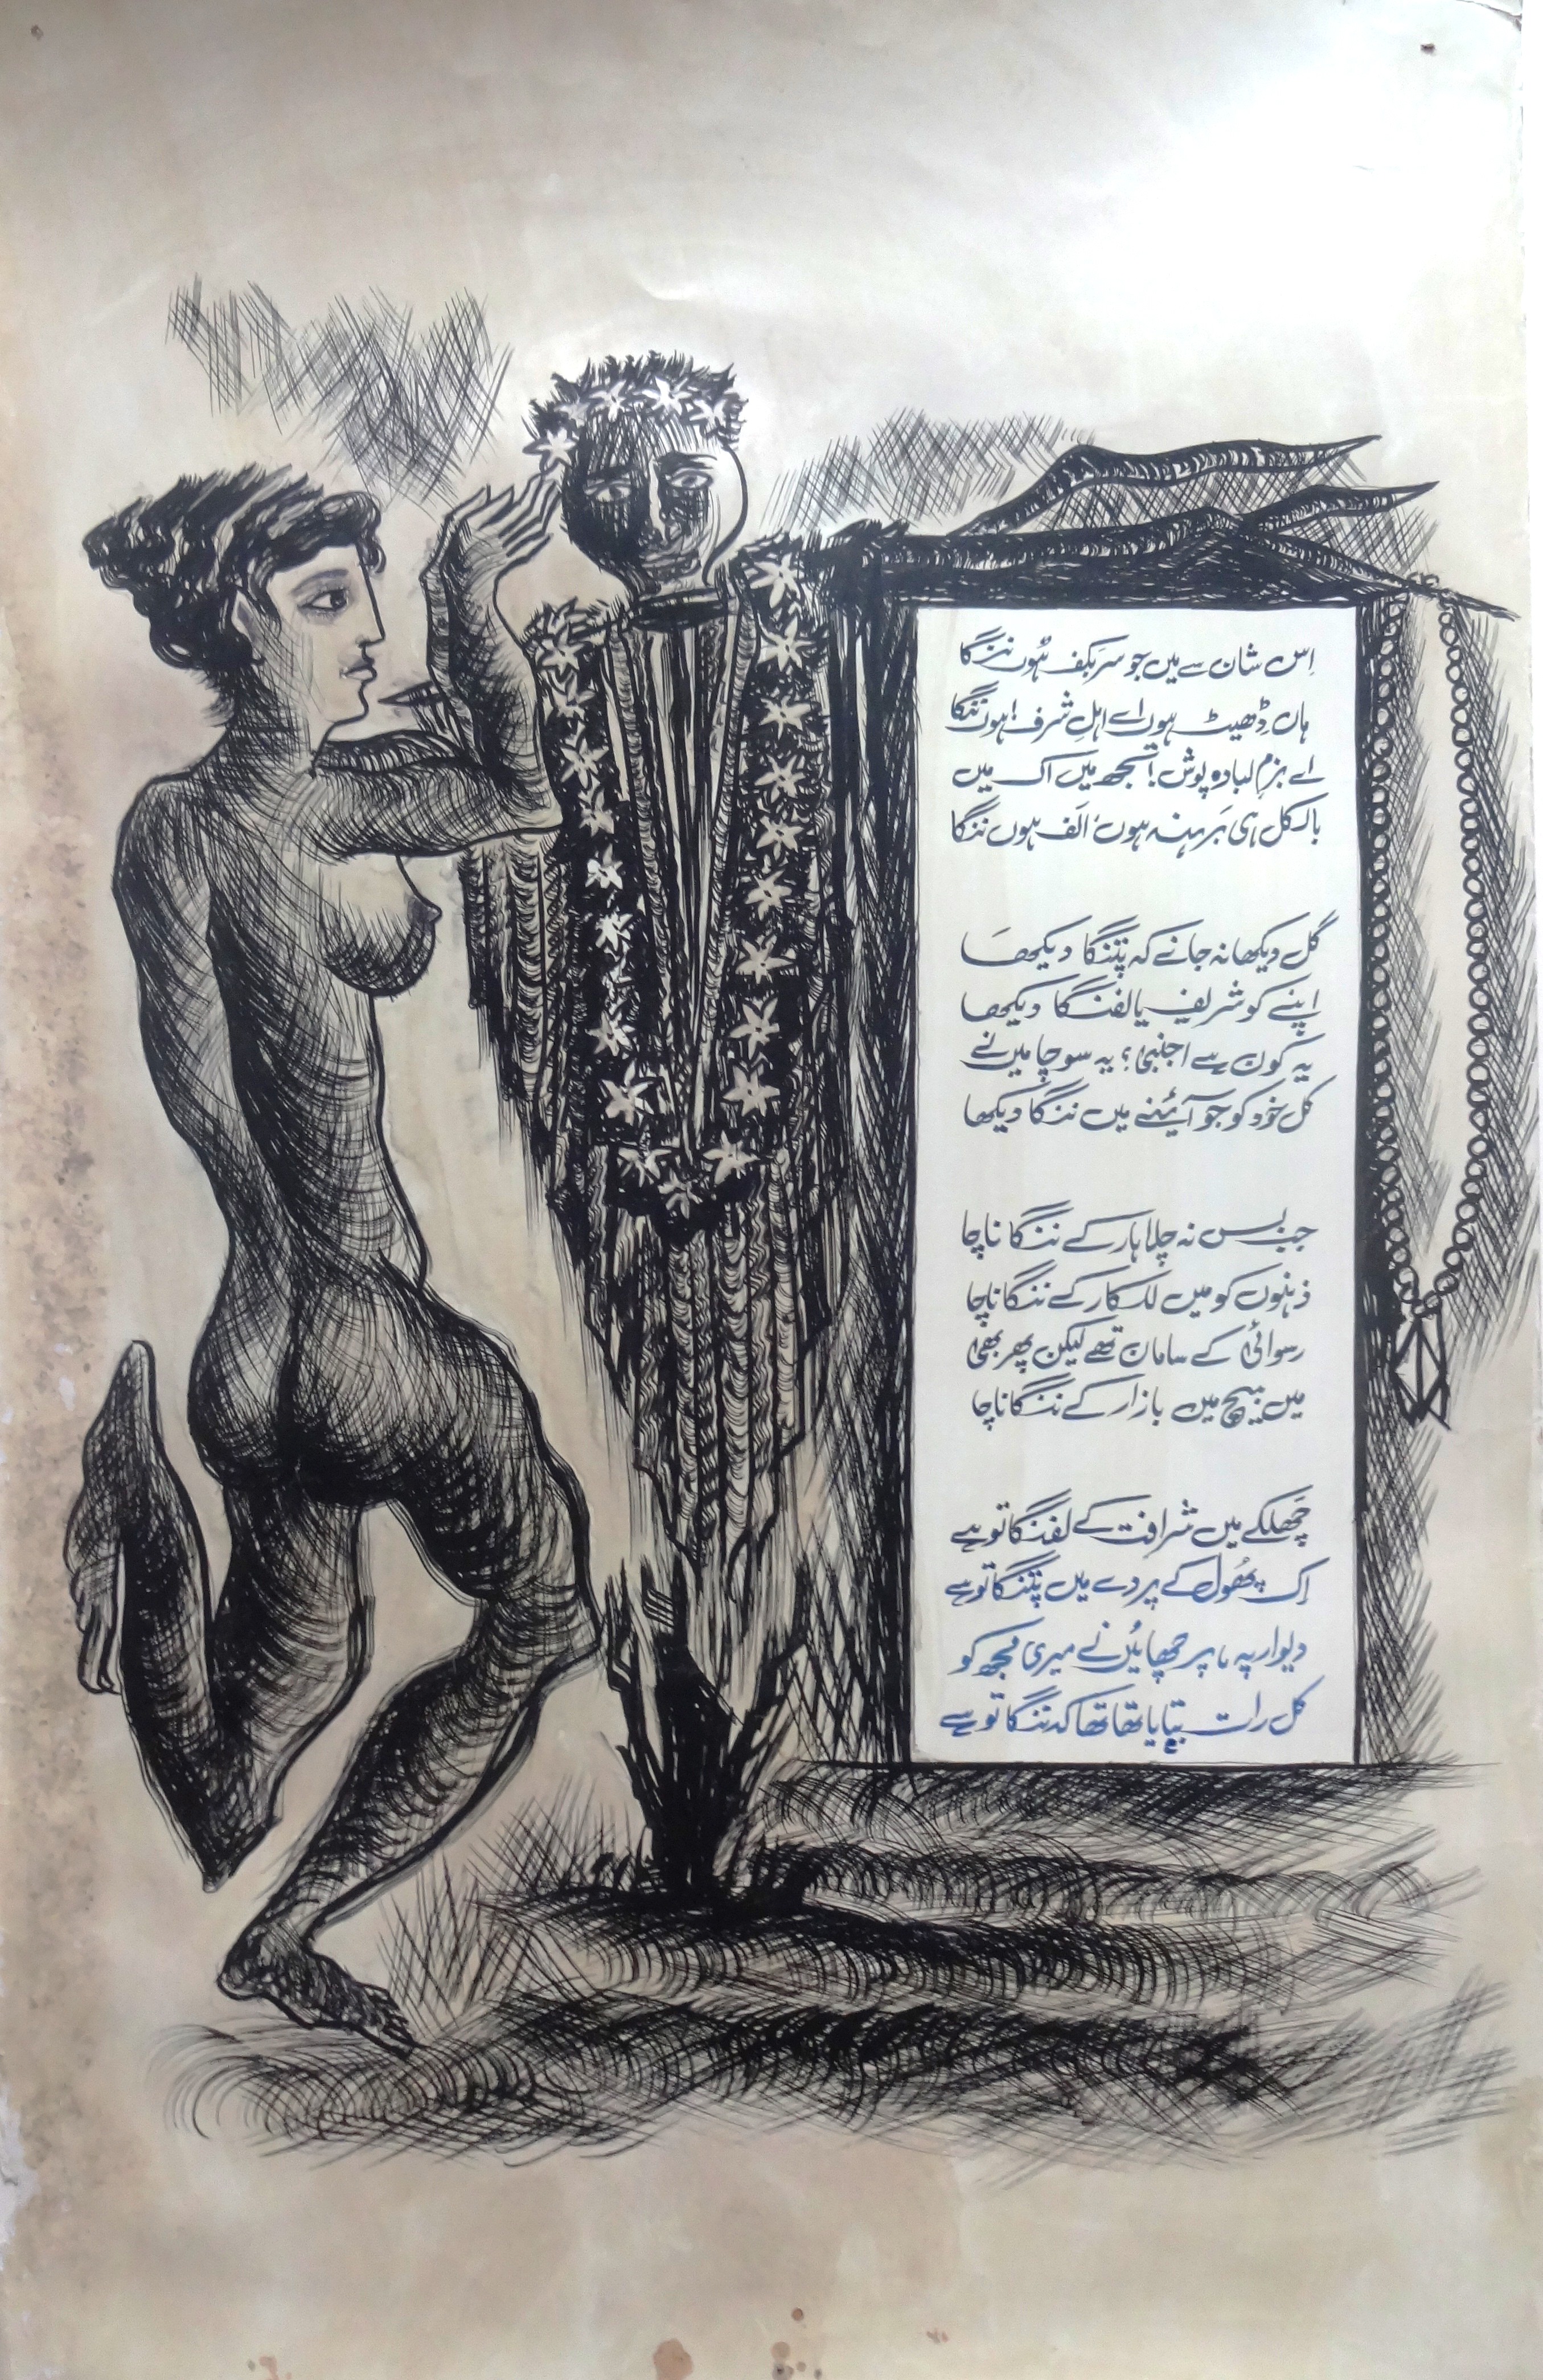 اِس شان سے میں جو سَربکف ہُوں ننگا
ہاں ڈِھیٹ ہوں اے اہلِ شرف! ہوں ننگا
اے بزمِ لبادہ پوش! تجھ میں اک میں
بالکل ہی بَرہنہ ہوں، اَلَف ہوں ننگا
گل دیکھا نہ جانے کہ پتنگا دیکھا
اپنے کو شریف یا لفنگا دیکھا
یہ کون ہے اجنبی؟ یہ سوچا میں نے
کل خود کو جو آئینے میں ننگا دیکھا
جب بس نہ چلا ہار کے ننگا ناچا
ذہنوں کو میں للکار کے ننگا ناچا
رسوائی کے سامان تھے لیکن پھر بھی
میں بیچ میں بازار کے ننگا ناچا
چَھلکے میں شرافت کے لفنگا تو ہے
اِک پھُول کے پردے میں پتنگا تو ہے
دیوار پہ پرچھائیں نے میری مجھ کو
کل رات بتایا تھا کہ ننگا تو ہے